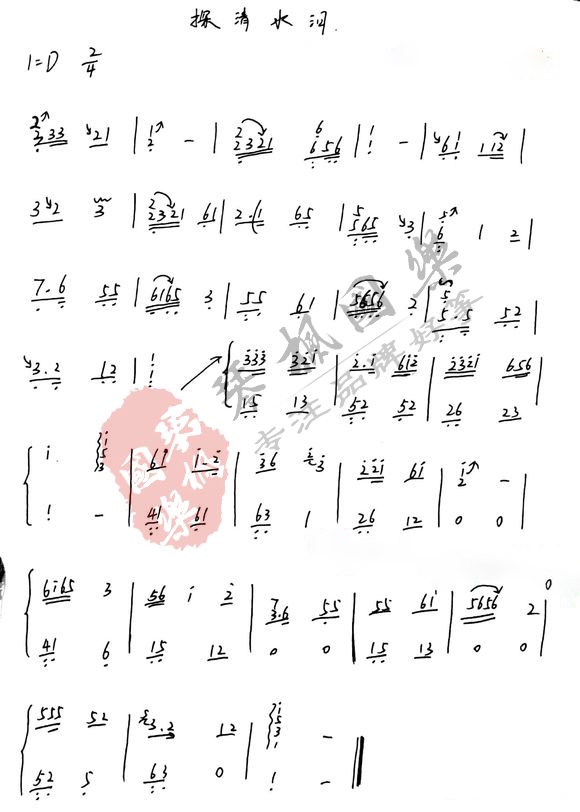 探清水河.
1=D 2/4
3 3 3 2 1 | 1 2 - | 2 2 3 2 1 6 6 5 6 | 1 - | 6 1 1 1 2 |
3 2 3 | 2 2 3 2 1 6 1 | 2 . 1 6 5 | 5 5 6 5 3 | 5 6 1 2 |
7 . 6 5 5 | 6 1 6 5 3 | 5 5 6 1 | 5 6 5 6 2 | 5 5 . 5 5 2 |
3 . 2 1 2 | 1 1 | 3 3 3 3 2 1 | 2 . 1 6 1 2 | 2 3 2 1 6 5 6 |
1 5 1 3 | 5 2 5 2 | 2 6 2 3 |
1 . 1 5 3 | 6 1 1 . 2 | 3 6 2 3 | 2 2 1 6 1 | 1 2 - |
1 - | 4 1 6 1 | 6 3 1 | 2 6 1 2 | 0 0 |
6 1 6 5 3 | 5 6 1 2 | 7 3 . 6 5 5 | 5 5 6 1 | 5 6 5 6 2 |
4 1 6 | 1 5 1 2 | 0 0 | 1 5 1 3 | 0 0 |
5 5 5 5 2 | 5 3 . 2 1 2 | 1 5 3 1 - ‖
5 2 5 | 6 3 0 | 1 - ‖
琴枫国乐
专注品牌好筝